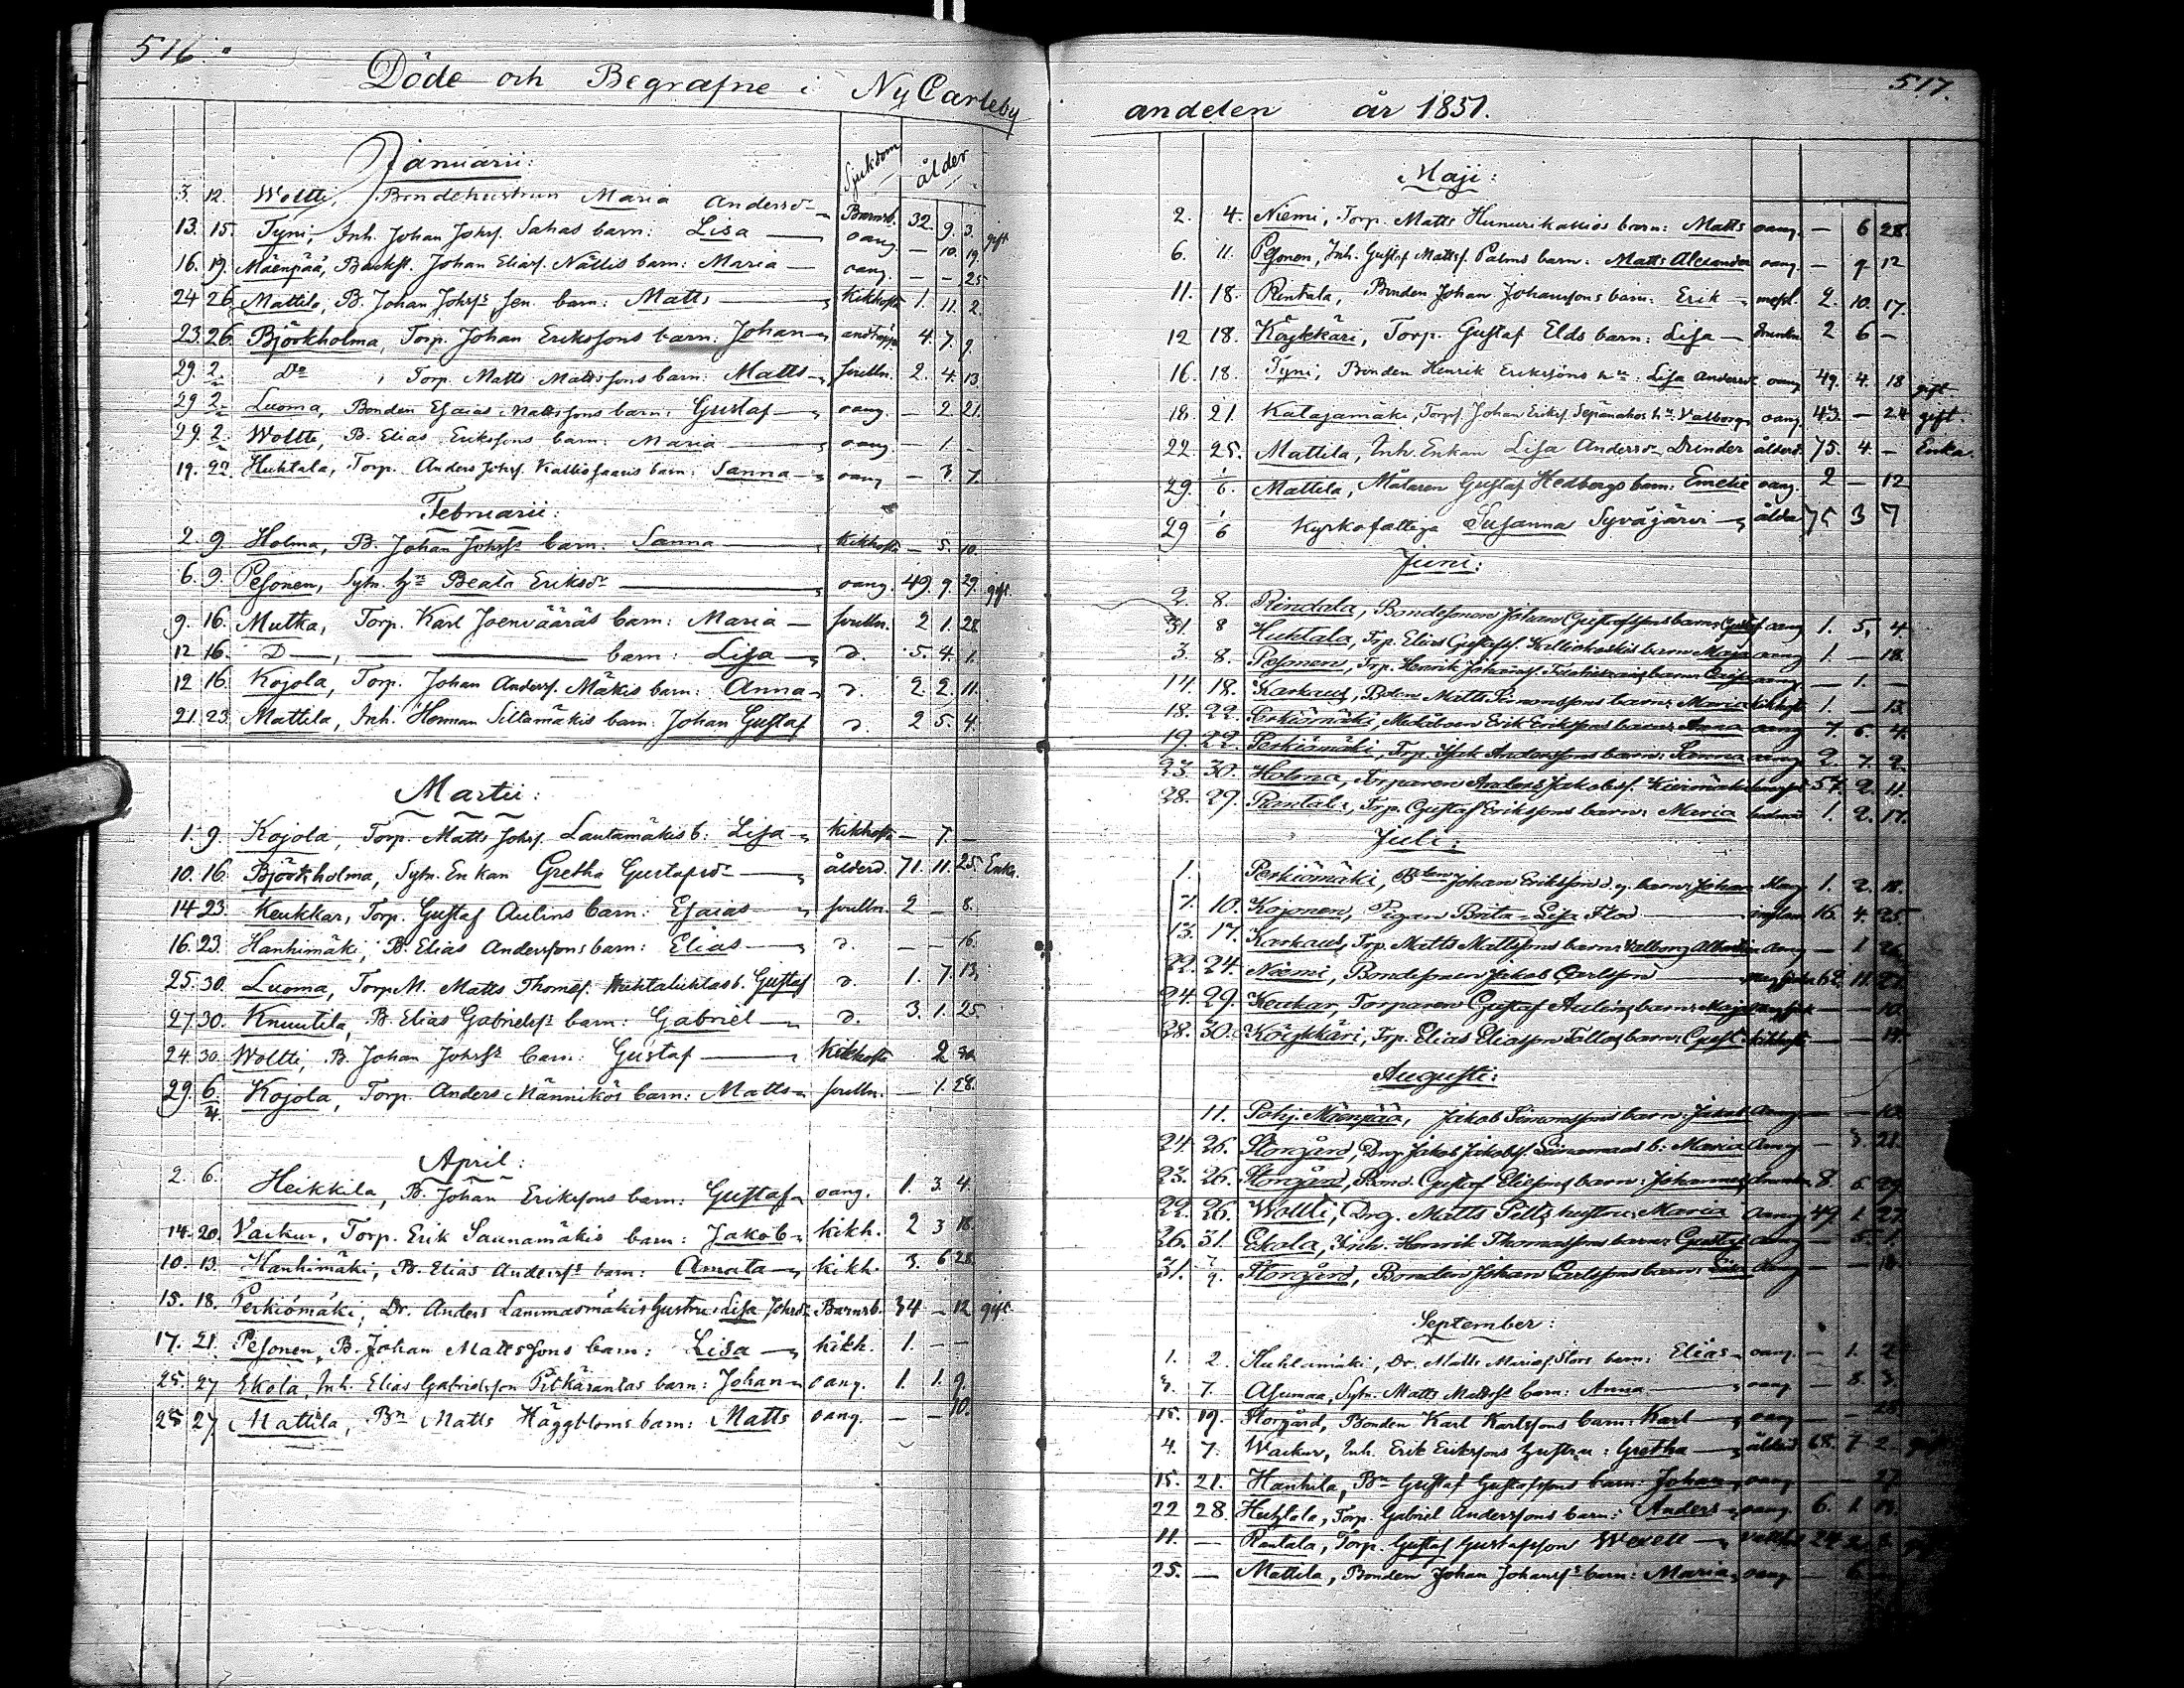 516.
Döde och Begrafne i NyCarleby
Sjukdom ålder
Januarii:
3. 12. Woltti, Bondehustrun Maria Andersdr Barnsb. 32. 9. 3. gift
13. 15. Tyni, Inh. Johan Johsf. Sahas barn: Lisa oang. — 10. 19.
16. 19. Mäenpää, Backst. Johan Eliasf. Nällis barn: Maria oang. — — 25
24 26. Mattila, B. Johan Johsfs sen. barn: Matts Kikhosta 1. 11. 2.
23. 26. Björkholma, Torp. Johan Erikssons barn: Johan andtäppa 4. 7. 9.
29. 2. Do, Torp. Matts Mattssons barn: Matts scrilln. 2. 4. 13.
29 2. Luoma, Bonden Esaias Mattssons barn: Gustaf oang. — 2. 21.
29. 2. Woltti, B. Elias Erikssons barn: Maria oang. — 1. —
19. 22. Huhtala, Torp. Anders Johsf. Kalliosaaris barn: Sanna oang — 3. 7.
Februarii:
2. 9. Holma, B. Johan Johsfs barn: Sanna Kikhosta — 5. 10.
6. 9. Pesonen, Sytn. hu Beata Eriksdr oang. 49. 9. 29. gift.
9. 16. Mutka, Torp. Karl Joenvääräs barn: Maria scrilln. 2 1. 28
12 16. D—, — barn: Lisa d. 5. 4. 1.
12 16. Kojola, Torp. Johan Andersf. Mäkis barn: Anna d. 2. 2. 11.
21. 23. Mattila, Inh. Herman Siltamäkis barn: Johan Gustaf d. 2 5. 4.
Martii:
1. 9. Kojola, Torp. Matts Johsf. Lautamäkis b: Lisa Kikhosta — 7. —
10. 16. Björkholma, Sytn. Enkan Gretha Gustafsdr ålderd. 71. 11. 25. Enka.
14 23. Keukkar, Torp. Gustaf Aulins barn: Esaias scrilln. 2 — 8.
16. 23. Hanhimäki, B. Elias Anderssons barn: Elias d. — — 16.
25. 30. Luoma, Torp. M. Matts Thomsf. Huhtaluhtas b. Gustaf d. 1. 7. 13.
27 30. Knuutila, B. Elias Gabrielsfs barn: Gabriel d. 3. 1. 25.
24. 30. Woltti, B. Johan Johsfs barn: Gustaf Kikhosta 2 30.
29. 6/4. Kojola, Torp. Anders Männikös barn: Matts scrilln. — 1. 28.
April:
2. 6. Heikkila, B. Johan Erikssons barn: Gustaf oang. 1. 3. 4.
14. 20. Vackur, Torp. Erik Saunamäkis barn: Jakob kikh. 2 3 18.
10. 13. Hanhimäki, B. Elias Andersfs barn: Amata kikh. 3. 6 28.
15. 18. Perkiömäki, Dr. Anders Lammasmäkis hustru: Lisa Johsdr Barnsb. 34 — 12 gift
17. 21. Pesonen, B. Johan Mattssons barn: Lisa kikh. 1. — —
25. 27 Ekola, Inh. Elias Gabrielsson Pitkärantas barn: Johan oang. 1. 1. 9.
25 27 Mattila, Bn Matts Häggbloms barn: Matts oang. — — 10.
517.
andelen år 1851.
Maji:
2. 4. Niemi, Torp. Matts barn: Matts oang. — 6 28.
6. 11. Pesonen, Inh. Gustaf Mattsf. Palms barn: Matts Alexander oang. — 9 12
11. 18. Rintala, Bonden Johan Johanssons barn: Erik messl. 2. 10. 17.
12 18. Köykkäri, Torp. Gustaf Elds barn: Lisa drunkn. 2 6 —
16. 18. Tyni, Bonden Henrik Erikssons hu: Lisa Andersdr oang 49. 4. 18 gift.
18. 21. Katajamäki, Torp. Johan Eriksf. Sepänahos hu Valborg oang. 43. — 24 gift.
22. 25. Mattila, Inh. Enkan Lisa Andersdr Drinder ålderd. 75. 4. — Enka.
29. 1/6. Mattila, Målaren Gustaf Hedbergs barn: Emelie oang. 2 — 12
29 1/6 Kyrkofattiga Susanna Syväjärvi ålder 75 3 7
Juni:
2. 8. Rindala, Bondesonen Johan Gustafssons barn: Gustaf oang 1. 5. 4.
31. 8 Huhtala, Trp. Elias Gustafsf. Kalliokoskis barn Maja oang 1. — 18.
3. 8. Pesonen, Trp. Henrik Johansf. barn: oang — 1. —
14. 18. Karhaus, Bden Matts Simonssons barn: Maria kikhosta 1. — 13.
18. 22. Perkiömäki, Erik Erikssons barn: Anna oang 7. 6. 4.
19. 22. Perkiömäki, Trp. Isak Anderssons barn: Sanna oang 2. 7. 2.
23. 30. Holma, Torparen Anders Jakobsf. 57. 2. 11.
28. 29. Rantala, Trp. Gustaf Erikssons barn: Maria 1. 2. 17.
Juli:
1. Perkiömäki, Bden Johan Eriksson d.y. barn: Johan oang 1. 2. 18.
7. 10. Kojonen, Pigan Brita-Lisa Flod 16. 4. 25.
13. 17. Karhaus, Trp. Matts Mattssons barn: Valborg Albertina oang — 1 26.
22. 24. Niemi, Bondesonen Jakob Carlsson 62. 11. 21.
24. 29. Keukar, Torparen Gustaf Aulins barn: Maja — — 10.
28. 30. Köykkäri, Trp. Elias Eliasson Tallas barn: Gust. kikhosta — — 14.
Augusti:
11. Pohj. Mäenpää, Jakob Simonssons barn: Jakob oang — — 10.
24. 26. Storgård, Drg. Jakob Jakobsf. b: Maria oang — 3. 21.
23. 26. Storgård, Bond. Gustaf Eliassons barn: Johannes 8. 6. 29.
22. 26. Woltti, Drg. Matts Pelts hustru Maria oang 49. 1. 27.
26. 31. Ekola, Inh. Henrik Thomassons barn: Gustaf oang — 5. 1.
31. 7/9. Storgård, Bonden Johan Carlssons barn: oang — — 18
September:
1. 2. Huhtamäki, Dr. Matts barn: Elias oang. — 1. 2
3. 7. Asumaa, Sytn. Matts Mattsfs barn: Anna oang — 8. 3.
15. 19. Storgård, Bonden Karl Karlssons barn: Karl oang — — 28.
4. 7. Wackur, Inh. Erik Erikssons hustru: Gretha ålderd 68. 7 2
15. 21. Hanhila, Bn Gustaf Gustafssons barn: Johan oang — — 27.
22 28. Huhtala, Torp. Gabriel Anderssons barn: Anders oang. 6. 1. 13.
11. — Rantala, Torp. Gustaf Gustafsson Wexell 24. 2.
25. — Mattila, Bonden Johan Johansfs barn: Maria oang — 6